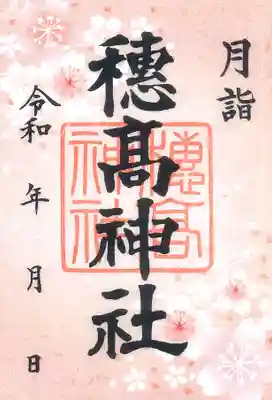 月詣
穂髙神社
穂高神社
令和 年 月 日